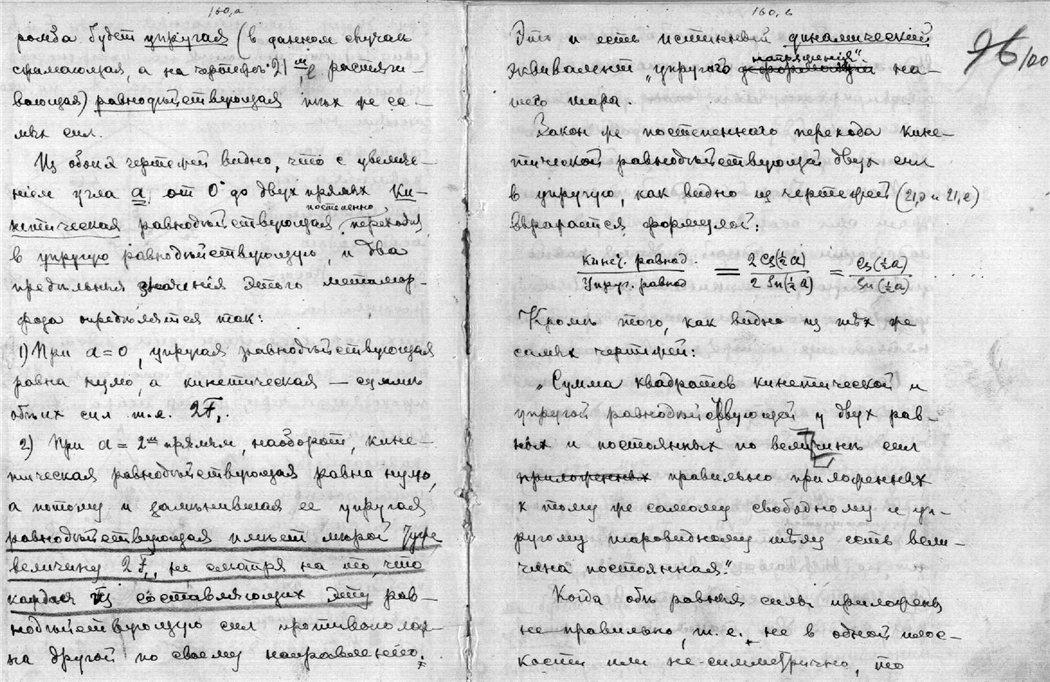 160,а
ромба будет упругая (в данном случаѣ
сжимающая, а на чертежѣ 21 растяги-
вающая) равнодѣйствующая тѣх же са-
мых сил.
Из обоих чертежей видно, что с увеличе-
нiем угла α от 0° до двух прямых ки-
постепенно
нетическая равнодѣйствующая, переходя
в упругую равнодѣйствующую, и два
предѣльныя значения этого метамор-
фоза опредѣляются так:
1) При α = 0, упругая равнодѣйствующая
равна нулю, а кинетическая — суммѣ
обѣих сил т.е. 2F,.
2) При α = 2ᵐ прямым, наоборот, кине-
тическая равнодѣйствующая равна нулю,
а потому и замѣнившая ее упругая
равнодѣйствующая имѣет мѣрой
величину 2F,, не смотря на то, что
каждая из составляющих эту рав-
нодѣйствующую сил противополож-
на другой по своему направленiю.
160,в
Это и есть истинный динамический
напряжения"
эквивалент „упругого деформация на-
шего шара.
96/100
Закон же постепенного перехода кине-
тической равнодѣйствующей двух сил
в упругую, как видно из чертежей (21,д и 21,е)
выражается формулой:
Кинет. равнод / Упруг. равнод = 2 Cs(½ α) / 2 Sn(½ α) = Cs(½ α) / Sn(½ α)
Кромѣ того, как видно из тѣх же
самых чертежей:
„Сумма квадратов кинетической и
упругой равнодѣйствующей у двух рав-
ных и постоянных по величинѣ сил
приложенных правильно приложенных
к тому же самому свободному и уп-
ругому шаровидному тѣлу есть вели-
чина постоянная."
Когда обѣ равныя силы приложены
не правильно, т.е. не в одной плос-
кости или не симметрично, то